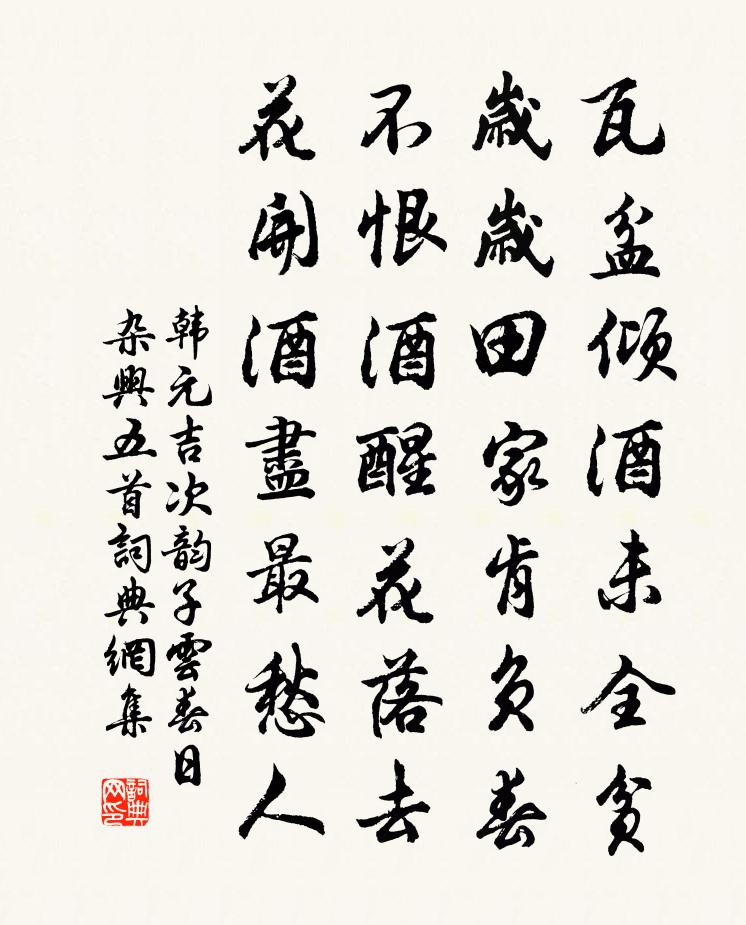 瓦盆倾酒未全貧
歲歲田家肯負春
不恨酒醒花落去
花開酒盡最愁人
韩元吉次韵子雲春日
杂興五首詞典網集
詞典网印